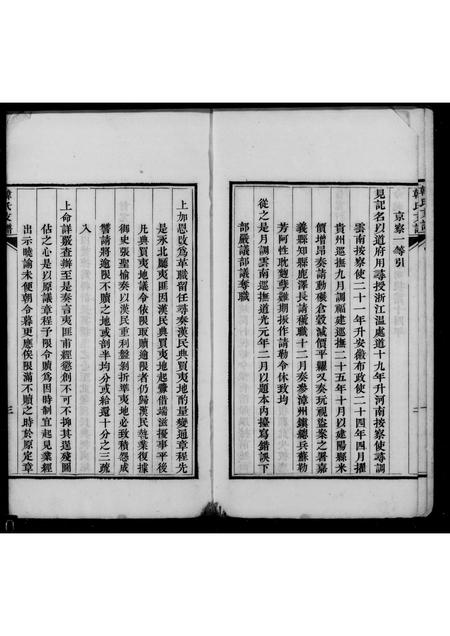 京察一等引
見記名以道府用尋授浙江溫處道十九年升河南按察使尋調
雲南按察使二十一年升安徽布政使二十四年四月擢
貴州巡撫九月調福建巡撫二十五年十月以建陽縣米
價增昂奏請勒碾倉穀減價平糶又奏玩視盜案之署嘉
義縣知縣鹿澤長請褫職十二月奏參漳州鎮總兵蘇勒
芳阿性耽麴孽難期振作請勒令休致均
從之是月調雲南巡撫道光元年二月以題本內擡寫錯誤下
部嚴議部議奪職
上加恩改為革職留任尋奏漢民典買夷地酌量變通章程先
是永北廳夷匪因漢民典買夷地起釁借端滋擾事平後
凡典買夷地議令依限取贖逾限者仍歸漢民執業復據
御史張聖愉奏以漢民重利盤剝折準夷地必致積怨成
釁請將逾限不贖之地或剖半均分或給還十分之三疏
入
上命詳嚴查辦至是奏言夷匪甫經懲創不可不抑其逞殘圖
佔之心是以原議章程予限令贖為因時制宜起見業經
出示曉諭未便朝令暮更應俟限滿不贖之時於原定章
韓氏支譜
三
韓氏支譜
二